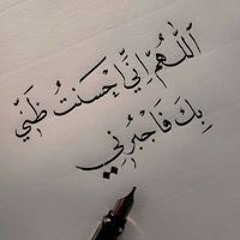 اَللّٰهُمَّ اِنِّي اَحْسَنتُ ظَنِّي
بِكَ فَاجْبُرْنِي